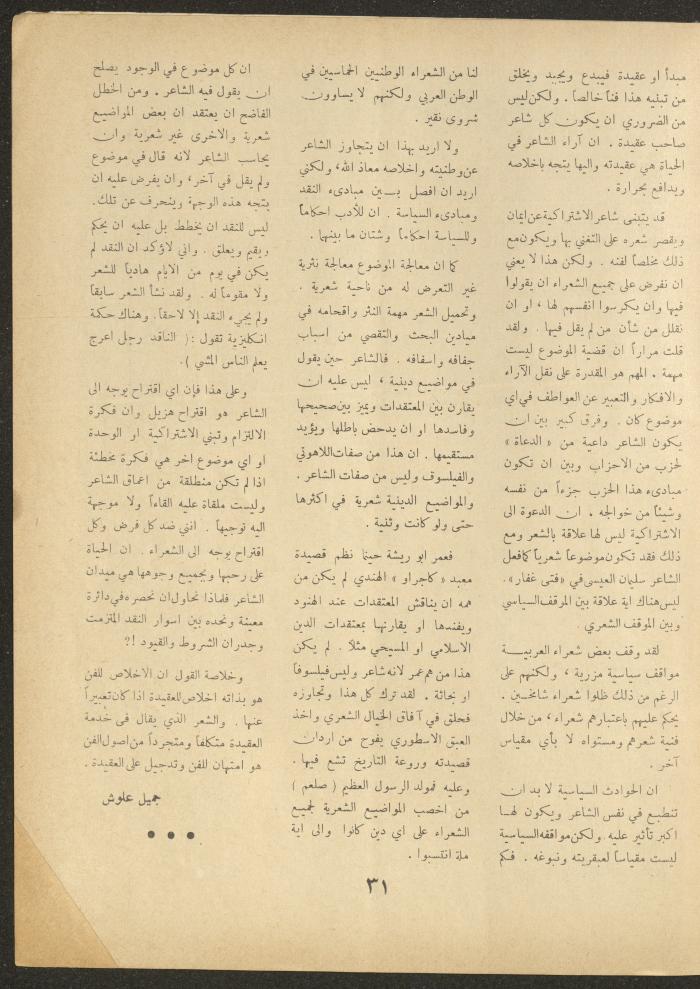 مبدأ او عقيدة فيبدع ويجيد ويخلق
من تبنيه هذا فناً خالصاً . ولكن ليس
من الضروري ان يكون كل شاعر
صاحب عقيدة . ان آراء الشاعر في
الحياة هي عقيدته واليها يتجه باخلاصه
ويدافع بحرارة .
قد يتبنى شاعر الاشتراكية عن ايمان
ويقصر شعره على التغني بها ويكون مع
ذلك مخلصاً لفنه . ولكن هذا لا يعني
ان نفرض على جميع الشعراء ان يقولوا
فيها وان يكرسوا انفسهم لها ، او ان
نقلل من شأن من لم يقل فيها . ولقد
قلت مراراً ان قضية الموضوع ليست
مهمة . المهم هو المقدرة على نقل الآراء
والافكار والتعبير عن العواطف في اي
موضوع كان . وفرق كبير بين ان
يكون الشاعر داعية من « الدعاة »
لحزب من الاحزاب وبين ان تكون
مبادىء هذا الحزب جزءاً من نفسه
وشيئاً من خوالجه . ان الدعوة الى
الاشتراكية ليس لها علاقة بالشعر ومع
ذلك فقد تكون موضوعاً شعرياً كما فعل
الشاعر سليان العيسى في «فتى غفار» .
ليس هناك اية علاقة بين الموقف السياسي
وبين الموقف الشعري .
لقد وقف بعض شعراء العربية
مواقف سياسية مزرية ، ولكنهم على
الرغم من ذلك ظلوا شعراء شامخين .
يحكم عليهم باعتبارهم شعراء ، من خلال
فنية شعرهم ومستواه لا بأي مقياس
آخر .
ان الحوادث السياسية لا بد ان
تنطبع في نفس الشاعر ويكون لها
اكبر تأثير عليه . ولكن مواقفه السياسية
ليست مقياساً لعبقريته ونبوغه . فكم
لنا من الشعراء الوطنيين الحماسيين في
الوطن العربي ولكنهم لا يساوون
شروى نقير .
ولا اريد بهذا ان يتجاوز الشاعر
عن وطنيته واخلاصه معاذ الله ، ولكني
اريد ان افصل بين مبادىء النقد
ومبادىء السياسة . ان للأدب احكاماً
وللسياسة احكاماً وشتان ما بينها .
كما ان معالجة الموضوع معالجة نثرية
غير التعرض له من ناحية شعرية .
وتحميل الشعر مهمة النثر واقحامه في
ميادين البحث والتقصي من اسباب
جفافه واسفافه . فالشاعر حين يقول
في مواضيع دينية ، ليس عليه ان
يقارن بين المعتقدات ويميز بين صحيحها
وفاسدها او ان يدحض باطلها ويؤيد
مستقيمها . ان هذا من صفات اللاهوتي
والفيلسوف وليس من صفات الشاعر .
والمواضيع الدينية شعرية في اكثرها
حتى ولو كانت وثنية .
فعمر ابو ريشة حينما نظم قصيدة
معبد « كاجراو » الهندي لم يكن من
همه ان يناقش المعتقدات عند الهنود
ويفندها او يقارنها بمعتقدات الدين
الاسلامي او المسيحي مثلاً . لم يكن
هذا من هم عمر لانه شاعر وليس فيلسوفاً
او بحاثة . لقد ترك كل هذا وتجاوزه
فحلق في آفاق الخيال الشعري واخذ
العبق الاسطوري يفوح من اردان
قصيدته وروعة التاريخ تشع فيها .
وعليه فمولد الرسول العظيم ( صلعم )
من اخصب المواضيع الشعرية لجميع
الشعراء على اي دين كانوا والى اية
ملة انتسبوا .
ان كل موضوع في الوجود يصلح
ان يقول فيه الشاعر . ومن الخطل
الفاضح ان يعتقد ان بعض المواضيع
شعرية والاخرى غير شعرية وان
يحاسب الشاعر لانه قال في موضوع
ولم يقل في آخر ، وان يفرض عليه ان
يتجه هذه الوجهة وينحرف عن تلك .
ليس للنقد ان يخطط بل عليه ان يحكم
ويقيم ويعلق . واني لاؤكد ان النقد لم
يكن في يوم من الايام هادياً للشعر
ولا مقوماً له . ولقد نشأ الشعر سابقاً
ولم يجىء النقد إلا لاحقاً . وهناك حكمة
انكليزية تقول : ( الناقد رجل اعرج
يعلم الناس المشي ) .
وعلى هذا فإن اي اقتراح يوجه الى
الشاعر هو اقتراح هزيل وان فكرة
الالتزام وتبني الاشتراكية او الوحدة
او اي موضوع اخر هي فكرة مخطئة
اذا لم تكن منطلقة من اعماق الشاعر
وليست ملقاة عليه القاءاً ولا موجهة
اليه توجيهاً . انني ضد كل فرض وكل
اقتراح يوجه الى الشعراء . ان الحياة
على رحبها وبجميع وجوهها هي ميدان
الشاعر فلماذا نحاول ان نحصره في دائرة
معينة ونحده بين اسوار النقد المتزمت
وجدران الشروط والقيود ؟!
وخلاصة القول ان الاخلاص للفن
هو بذاته اخلاص للعقيدة اذا كان تعبيراً
عنها . والشعر الذي يقال في خدمة
العقيدة متكلفاً ومتجرداً من اصول الفن
هو امتهان للفن وتدجيل على العقيدة .
جميل علوش
● ● ●
٣١